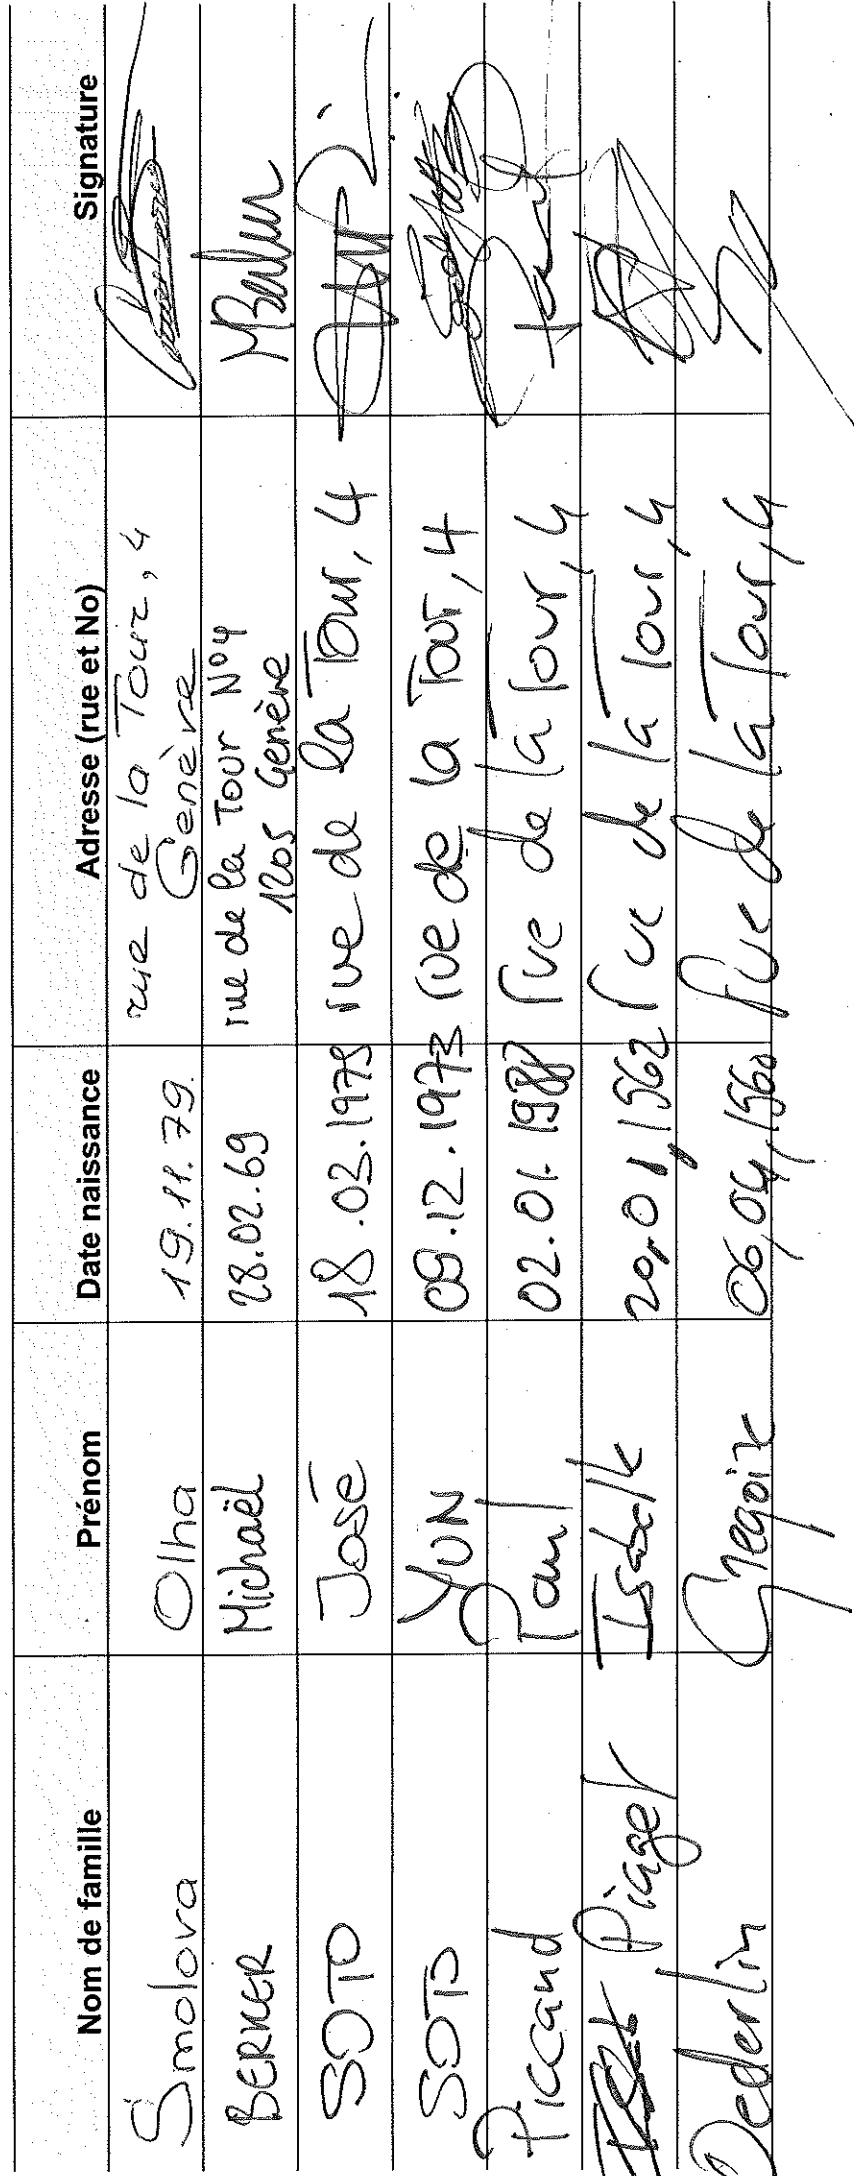 Nom de famille Prénom Date naissance Adresse (rue et No) Signature
Smolova Olha 19.11.79. rue de la Tour, 4
Genève
BERKER Michaël 28.02.69 rue de la Tour N°4
1205 Genève
SOTO José 18.03.1979 rue de la Tour, 4
SOTO YUN 09.12.1973 rue de la Tour, 4
Piccand Paul 02.01.1988 rue de la Tour, 4
Piaget Isabelle 20,01,1962 rue de la Tour, 4
Dederlin Gregoire 06,04,1960 Rue de la Tour, 4